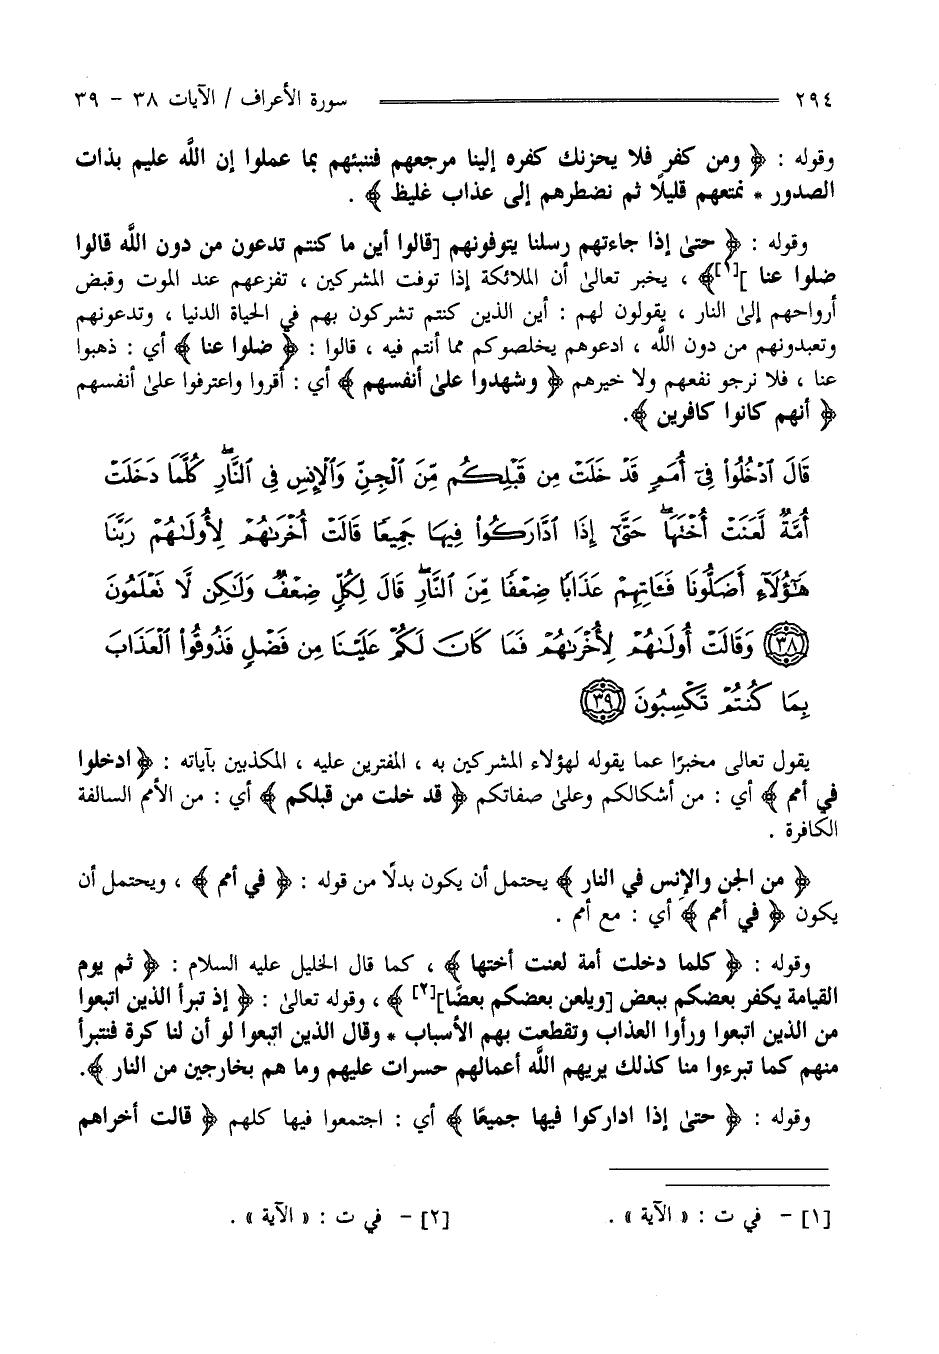 ٢٩٤ سورة الأعراف / الآيات ٣٨ - ٣٩
وقوله : ﴿ ومن كفر فلا يحزنك كفره إلينا مرجعهم فننبئهم بما عملوا إن اللَّه عليم بذات
الصدور * نمتعهم قليلًا ثم نضطرهم إلى عذاب غليظ ﴾ .
وقوله : ﴿ حتىٰ إذا جاءتهم رسلنا يتوفونهم [قالوا أين ما كنتم تدعون من دون اللَّه قالوا
ضلوا عنا ][١]﴾ ، يخبر تعالىٰ أن الملائكة إذا توفت المشركين ، تفزعهم عند الموت وقبض
أرواحهم إلىٰ النار ، يقولون لهم : أين الذين كنتم تشركون بهم في الحياة الدنيا ، وتدعونهم
وتعبدونهم من دون اللَّه ، ادعوهم يخلصوكم مما أنتم فيه ، قالوا : ﴿ ضلوا عنا ﴾ أي : ذهبوا
عنا ، فلا نرجو نفعهم ولا خيرهم ﴿ وشهدوا علىٰ أنفسهم ﴾ أي : أقروا واعترفوا علىٰ أنفسهم
﴿ أنهم كانوا كافرين ﴾.
قَالَ ٱدۡخُلُواْ فِيٓ أُمَمٖ قَدۡ خَلَتۡ مِن قَبۡلِكُم مِّنَ ٱلۡجِنِّ وَٱلۡإِنسِ فِي ٱلنَّارِۖ كُلَّمَا دَخَلَتۡ
أُمَّةٞ لَّعَنَتۡ أُخۡتَهَاۖ حَتَّىٰٓ إِذَا ٱدَّارَكُواْ فِيهَا جَمِيعٗا قَالَتۡ أُخۡرَىٰهُمۡ لِأُولَىٰهُمۡ رَبَّنَا
هَٰٓؤُلَآءِ أَضَلُّونَا فَـَٔاتِهِمۡ عَذَابٗا ضِعۡفٗا مِّنَ ٱلنَّارِۖ قَالَ لِكُلّٖ ضِعۡفٞ وَلَٰكِن لَّا تَعۡلَمُونَ
٣٨ وَقَالَتۡ أُولَىٰهُمۡ لِأُخۡرَىٰهُمۡ فَمَا كَانَ لَكُمۡ عَلَيۡنَا مِن فَضۡلٖ فَذُوقُواْ ٱلۡعَذَابَ
بِمَا كُنتُمۡ تَكۡسِبُونَ ٣٩
يقول تعالى مخبرًا عما يقوله لهؤلاء المشركين به ، المفترين عليه ، المكذبين بآياته : ﴿ ادخلوا
في أمم ﴾ أي : من أشكالكم وعلىٰ صفاتكم ﴿ قد خلت من قبلكم ﴾ أي : من الأمم السالفة
الكافرة .
﴿ من الجن والإنس في النار ﴾ يحتمل أن يكون بدلًا من قوله : ﴿ في أمم ﴾ ، ويحتمل أن
يكون ﴿ في أمم ﴾ أي : مع أمم .
وقوله : ﴿ كلما دخلت أمة لعنت أختها ﴾ ، كما قال الخليل عليه السلام : ﴿ ثم يوم
القيامة يكفر بعضكم ببعض [ويلعن بعضكم بعضًا][٢] ﴾ ، وقوله تعالىٰ : ﴿ إذ تبرأ الذين اتبعوا
من الذين اتبعوا ورأوا العذاب وتقطعت بهم الأسباب * وقال الذين اتبعوا لو أن لنا كرة فنتبرأ
منهم كما تبرءوا منا كذلك يريهم اللَّه أعمالهم حسرات عليهم وما هم بخارجين من النار ﴾.
وقوله : ﴿ حتىٰ إذا اداركوا فيها جميعًا ﴾ أي : اجتمعوا فيها كلهم ﴿ قالت أخراهم
[١] - في ت : « الآية » . [٢] - في ت : « الآية » .